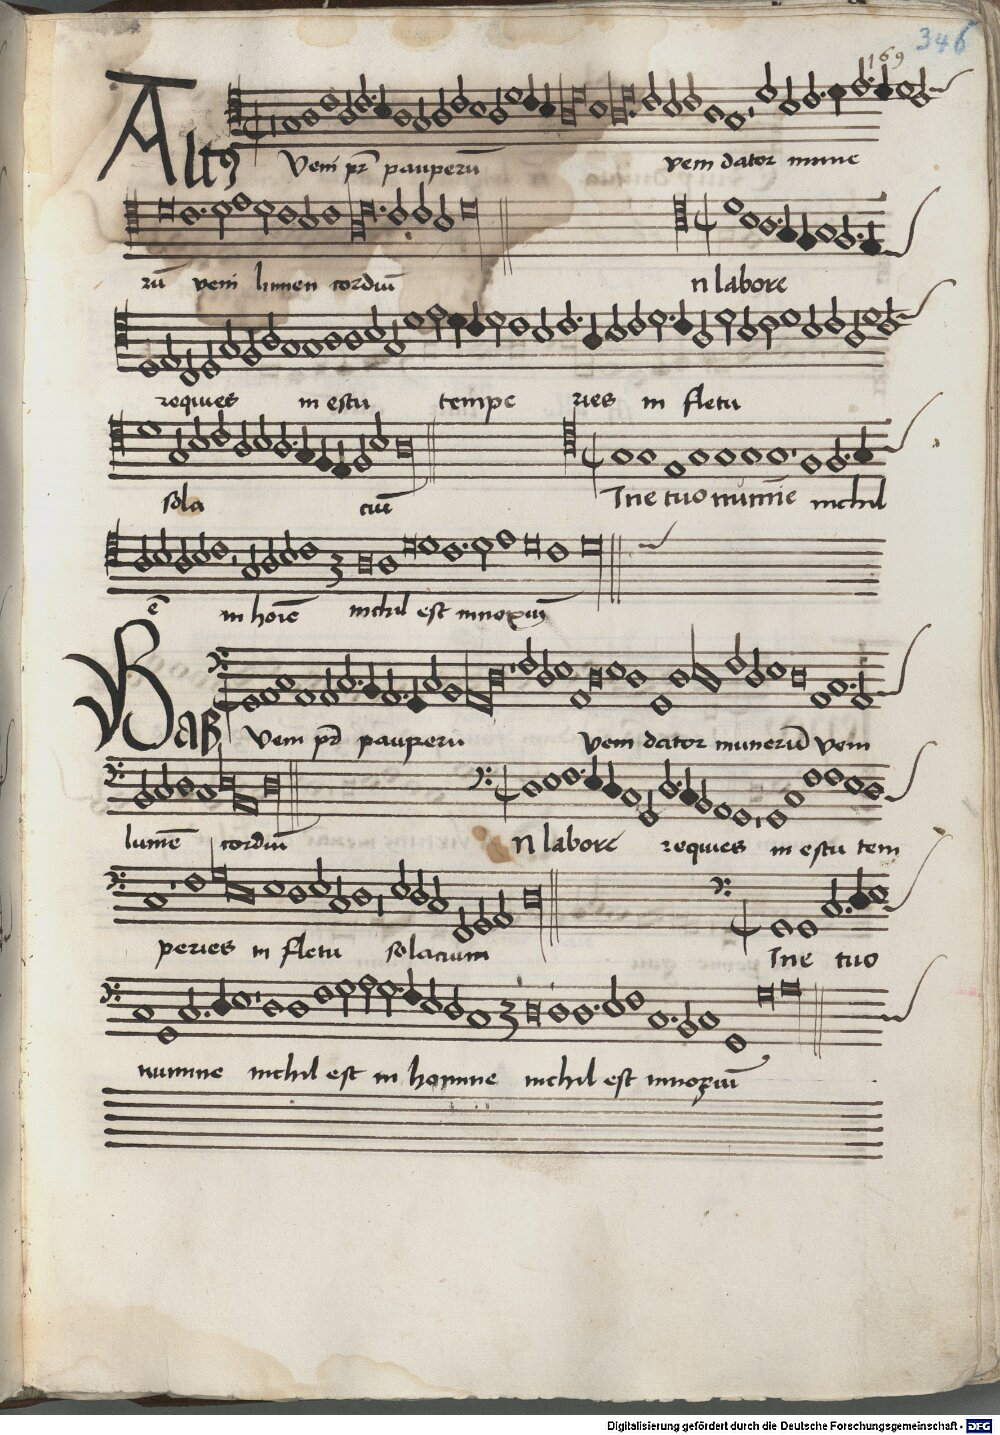 346
169
Altꝰ
Veni pr̄ pauperū veni dator mune
rū veni lumen cordiū n labore
requies in estu tempe ries in fletu
sola ciū Sine tuo numīe nichil
ē in hoīe nichil est innoxiū
Baß
Veni pr̄ pauperū veni dator munerū veni
lumē cordiū n labore requies in estu tem
peries in fletu solacium Sine tuo
numine nichil est in homine nichil est innoxiū
Digitalisierung gefördert durch die Deutsche Forschungsgemeinschaft - DFG